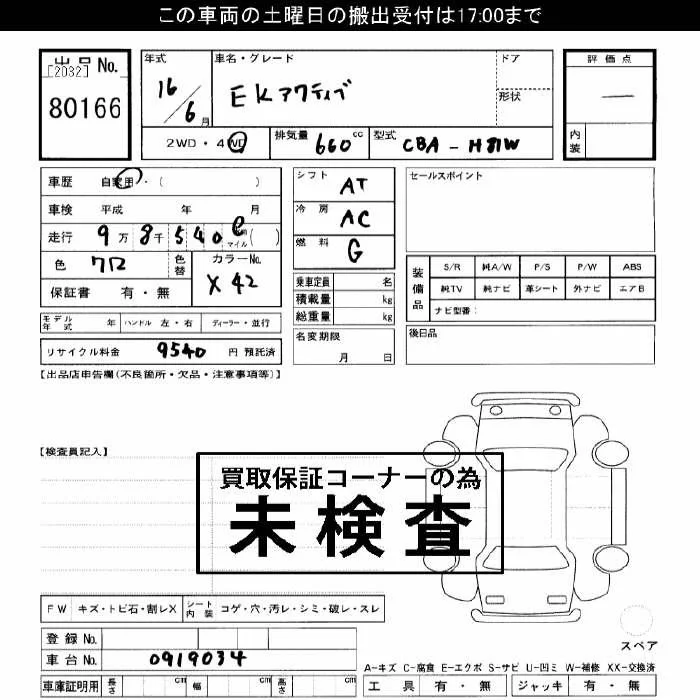 この車両の土曜日の搬出受付は17:00まで
出品 No.
[2032]
80166
年式
16/6月
車名・グレード
EKアクティブ
ドア
形状
評価点
—
内装
2WD・4WD
排気量 660 cc
型式 CBA-H81W
車歴 自家用・( )
車検 平成 年 月
走行 9万8千540 マイル( )
色 クロ
色替
カラーNo.
X42
保証書 有・無
シフト AT
冷房 AC
燃料 G
乗車定員 名
積載量 kg
総重量 kg
セールスポイント
装備品
S/R 純A/W P/S P/W ABS
純TV 純ナビ 革シート 外ナビ エアB
ナビ型番:
モデル年式 年 ハンドル 左・右 ディーラー・並行
リサイクル料金 9540 円 預託済
名変期限
月 日
後日品
【出品店申告欄(不良箇所・欠品・注意事項等)】
【検査員記入】
買取保証コーナーの為
未検査
FW キズ・トビ石・割レX シート内装 コゲ・穴・汚レ・シミ・破レ・スレ
登録 No.
車台 No. 0919034
車庫証明用 長さ cm 幅 cm 高さ cm
スペア
A-キズ C-腐食 E-エクボ S-サビ U-凹ミ W-補修 XX-交換済
工具 有・無 ジャッキ 有・無